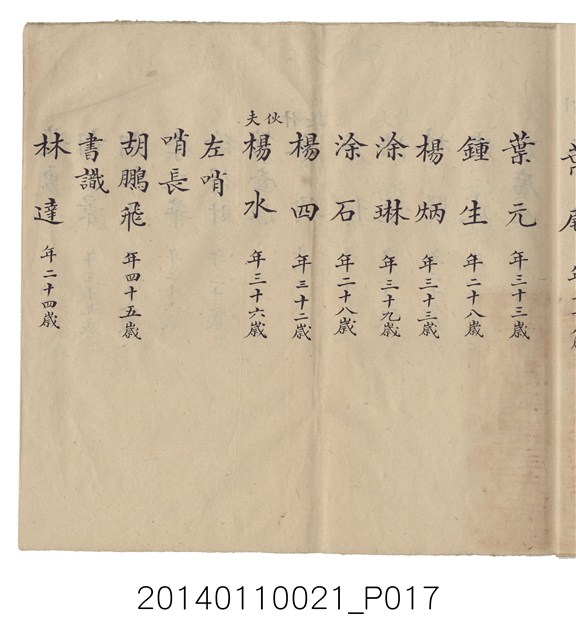 葉元 年三十三歲
鍾生 年二十八歲
楊炳 年三十三歲
涂琳 年三十九歲
涂石 年二十八歲
楊四 年三十二歲
伙夫
楊水 年三十六歲
左哨
哨長
胡鵬飛 年四十五歲
書識
林達 年二十四歲
20140110021_P017